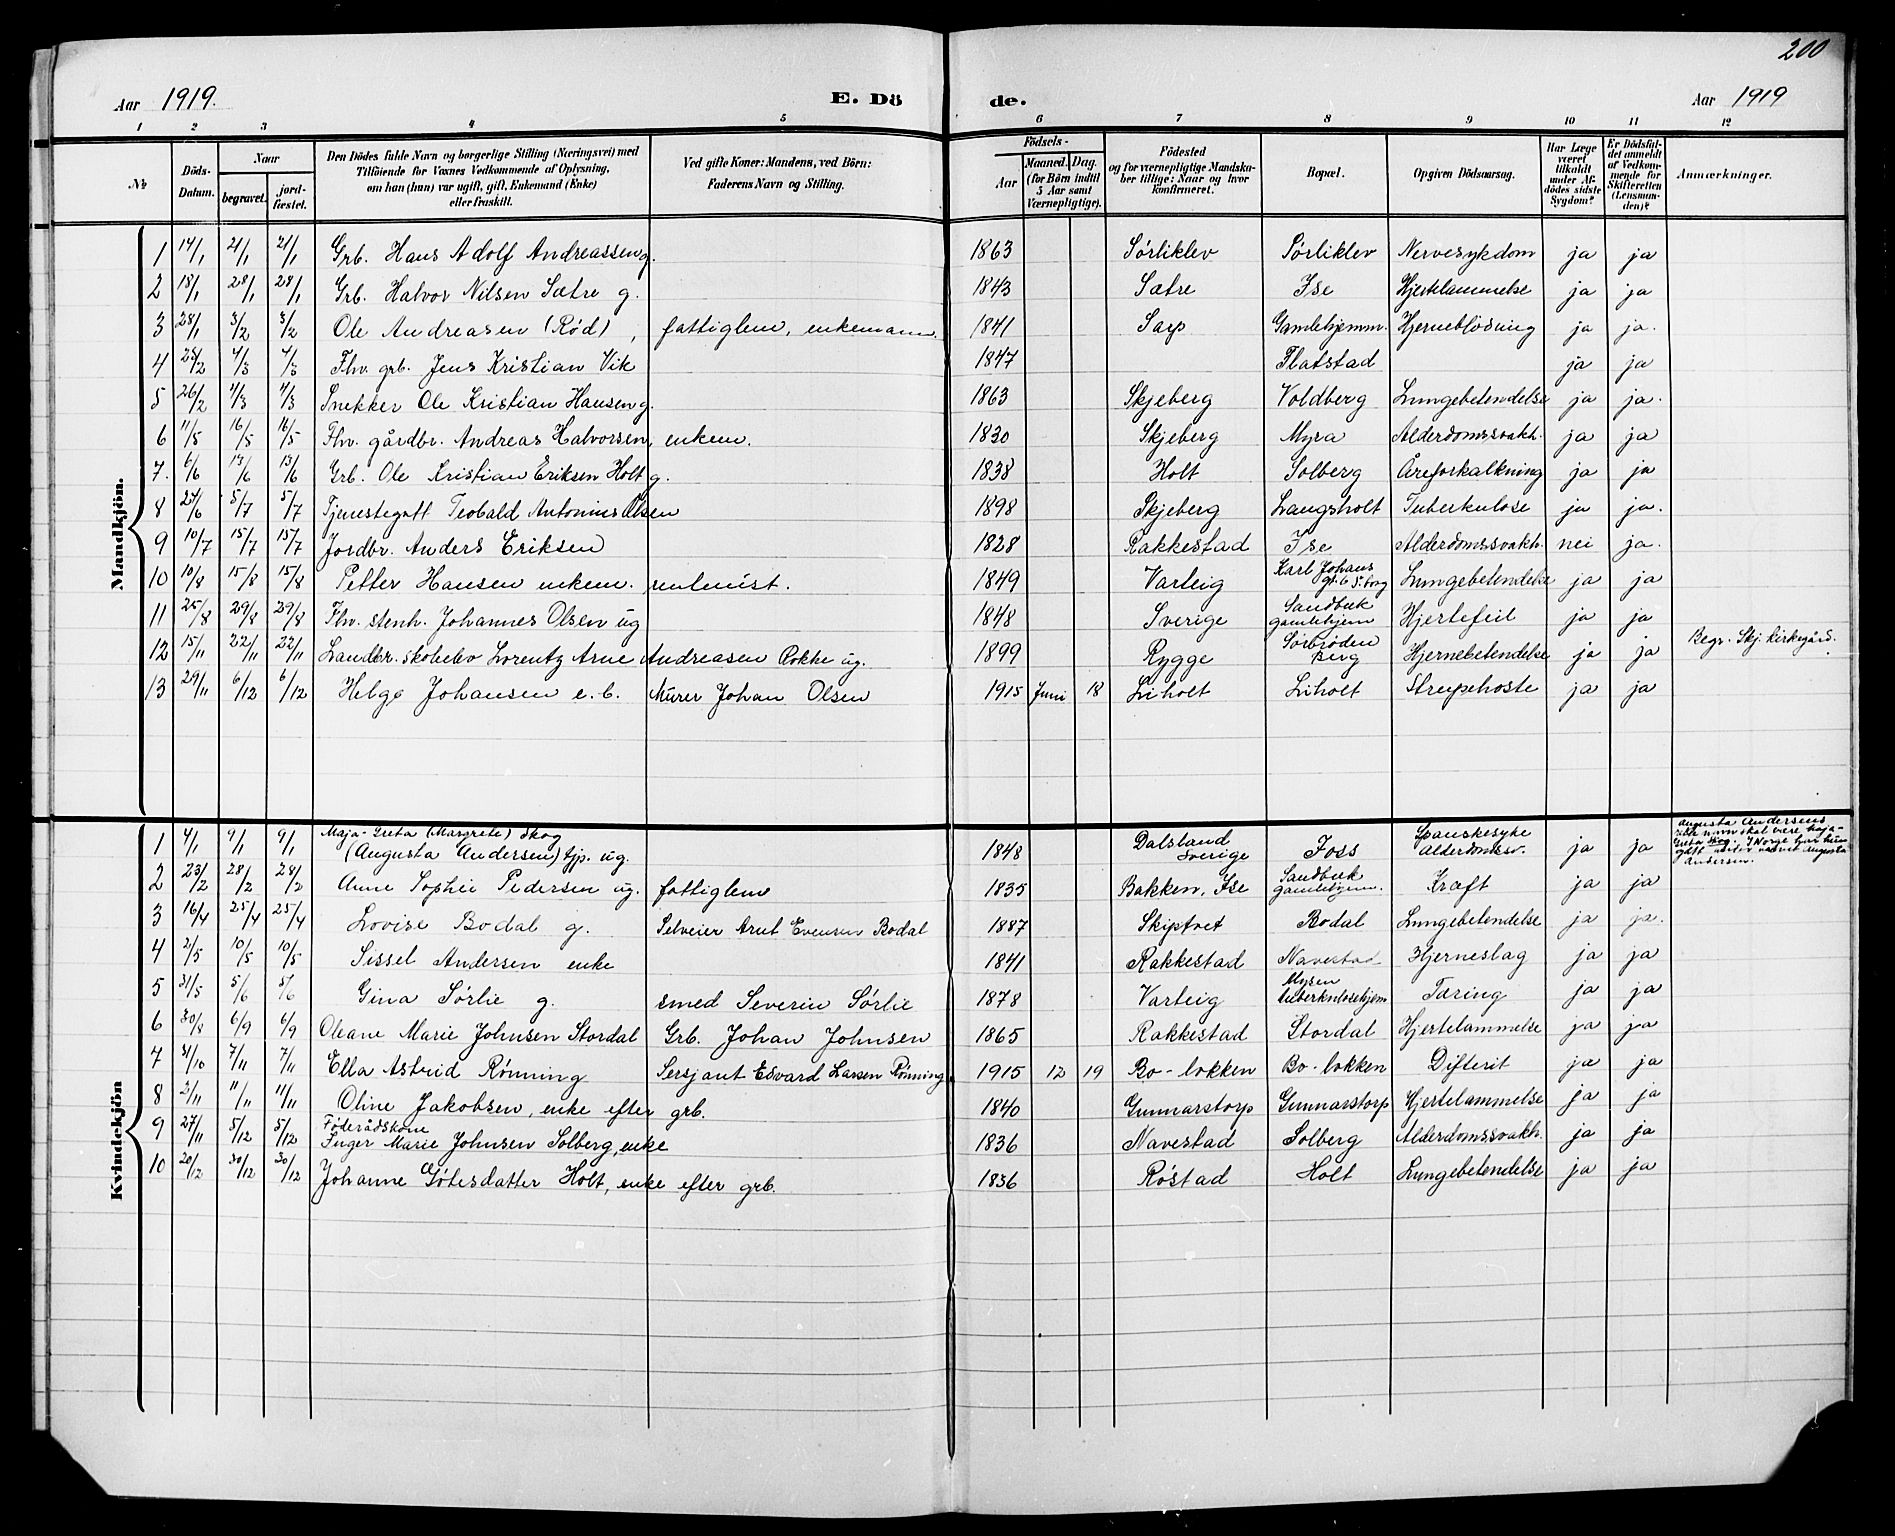 200
Aar 1919. E. Dö de. Aar 1919
1 2 3 4 5 6 7 8 9 10 11 12
№ Döds-Datum. Naar begravet. jordfæstet. Den Dödes fulde Navn og borgerlige Stilling (Næringsvei) med Tilföiende for Voxnes Vedkommende af Oplysning, om han (hun) var ugift, gift, Enkemand (Enke) eller fraskilt. Ved gifte Koner: Mandens, ved Börn: Faderens Navn og Stilling. Födsels- Aar Maaned. Dag. (for Börn indtil 5 Aar samt Værnepligtige). Födested og for værnepligtige Mandskaber tillige: Naar og hvor konfirmeret. Bopæl. Opgiven Dödsaarsag. Har Læge været tilkaldt under Afdödes sidste Sygdom? Er Dödsfaldet anmeldt af Vedkommende for Skifteretten (Lensmanden)? Anmærkninger.
Mandkjön.
1 14/1 21/1 21/1 Grb. Hans Adolf Andreassen g. 1863 Sørliklev Sørliklev Nervesykdom ja ja
2 18/1 28/1 28/1 Grb. Halvor Nilsen Sætre g. 1843 Sætre Ise Hjertelammelse ja ja
3 28/1 3/2 3/2 Ole Andreasen (Rød), fattiglem, enkemann. 1841 Sarp Gamlehjemm. Hjerneblödning ja ja.
4 25/2 4/3 4/3 Fhv. grb. Jens Kristian Vik 1847 Flatstad ja ja
5 26/2 4/3 4/3 Snekker Ole Kristian Hansen g. 1863 Skjeberg Voldberg Lungebetendelse ja ja.
6 11/5 16/5 16/5 Fhv. gårdbr. Andreas Halvorsen, enkem. 1830 Skjeberg Myra Alderdomssvakh. ja ja
7. 6/6 13/6 13/6 Grb. Ole Kristian Eriksen Holt g. 1838 Holt Solberg Åreforkalkning ja ja
8 27/6 5/7 5/7 Tjenestegutt Teobald Antonius Olsen 1898 Skjeberg Langsholt Tuberkulose ja ja.
9 10/7 15/7 15/7 Jordbr. Anders Eriksen 1828 Rakkestad Ise Alderdomssvakh. nei ja.
10 10/8 15/8 15/8 Petter Hansen enkem. rentenist. 1849 Varteig Karl Johans gt. 6 S.borg Lungebetendelse ja ja
11 25/8 29/8 29/8 Fhv. stenh. Johannes Olsen ug 1848 Sverige Sandbæk gamlehjem Hjertefeil ja ja
12 15/11 22/11 22/11 Landbr. skoleelev Lorentz Arne Andreasen Rokke ug. 1899 Rygge Sørbrøden Berg Hjernebetendelse ja ja Begr. Skj. kirkegård.
13 29/11 6/12 6/12 Helge Johansen e. b. Murer Johan Olsen 1915 Juni 18 Liholt Liholt Strupehoste ja ja
Kvindekjön
1 4/1 9/1 9/1 Maja-Greta (Margrete) Skog (Augusta Andersen) tjp. ug. 1848 Dalsland Sverige Foss Spanskesyke Alderdomssv. ja ja Augusta Andersens rette navn skal være Maja-Greta Skog. I Norge har hun navnet Augusta Andersen.
2 23/2 28/2 28/2 Anne Sophie Pedersen ug. fattiglem 1835 Bakken, Ise Sandbæk gamlehjem. Kræft ja ja
3 16/4 25/4 25/4 Lovise Bodal g. Selveier Arnt Evensen Bodal 1887 Skiptvet Bodal Lungebetendelse ja ja.
4 2/5 10/5 10/5 Sissel Andersen enke 1841 Rakkestad Navestad Hjerneslag ja ja
5 31/5 5/6 5/6 Gina Sørlie g. smed Severin Sørlie 1878 Varteig Mysen tuberkulosehjem Tæring ja ja
6 30/8 6/9 6/9 Oleane Marie Johnsen Stordal Grb. Johan Johnsen 1865 Rakkestad Stordal Hjertelammelse ja ja
7 31/10 7/11 7/11 Ella Astrid Rønning Sersjant Edvard Larsen Rønning 1915 12 19 Bo-løkken Bo-løkken Difterit ja ja
8 3/11 11/11 11/11 Oline Jakobsen, enke efter grb. 1840 Gunnarstorp Gunnarstorp Hjertelammelse ja ja
9 27/11 5/12 5/12 Føderådskone Inger Marie Johnsen Solberg, enke 1836 Navestad Solberg Alderdomssvakh. ja ja
10 20/12 30/12 30/12 Johanne Götesdatter Holt, enke efter grb. 1836 Røstad Holt Lungebetendelse ja ja